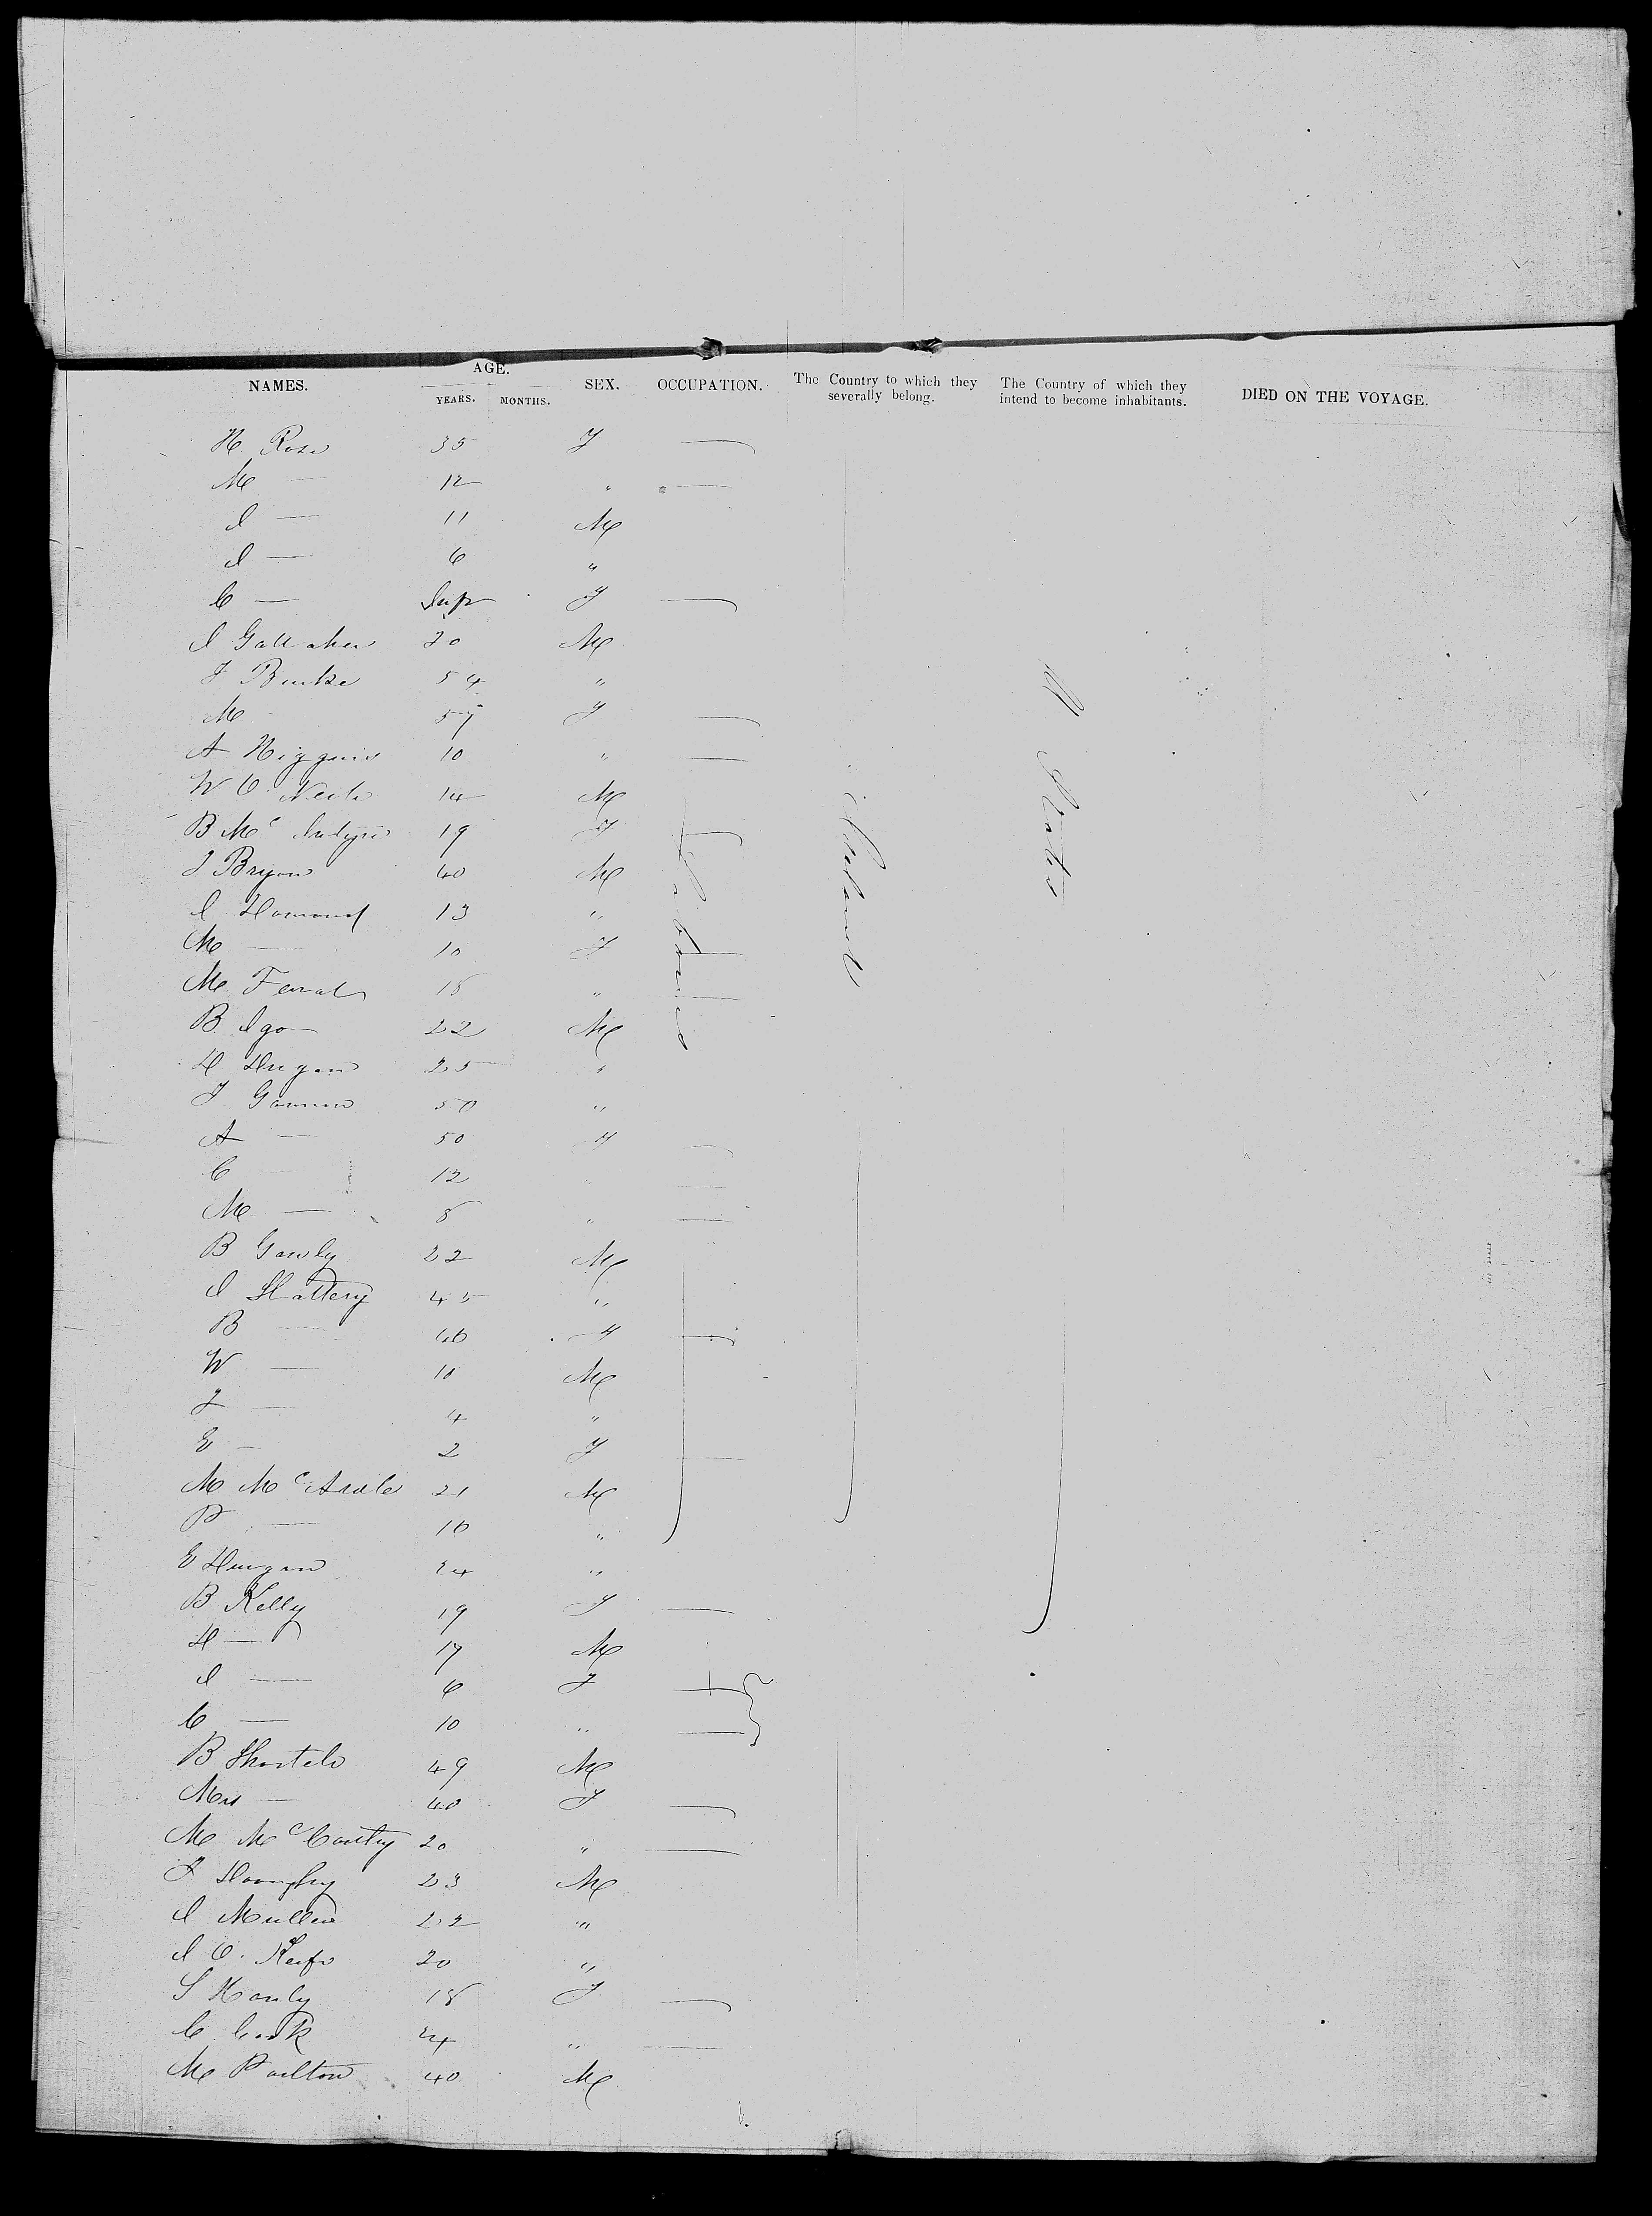 NAMES. AGE. YEARS. MONTHS. SEX. OCCUPATION. The Country to which they severally belong. The Country of which they intend to become inhabitants. DIED ON THE VOYAGE.
H Rose 35 F —
M — 12 " —
J — 11 M
J — 6 "
C — Inft F —
J Gallaher 20 M
J Burke 54 "
M — 57 F —
A Higgins 10 " —
W O'Neile 14 M
B Mc Intyre 19 F —
J Bryon 40 M
J 13 "
M — 10 F —
M 18 " —
B Igo 22 M
H 25 "
J 50 "
A — 50 F —
C — 12 " —
M — 8 " —
B Gawly 22 M
J Slattery 45 "
B — 46 F —
W — 10 M
J — 4 "
E — 2 F —
M Mc Ardle 21 M
P — 16 "
E 24 "
B Kelly 19 F —
H — 17 M
J — 6 F —
C — 10 " —
B 49 M
Mrs — 40 F —
M Mc Carthy 20 " —
J 23 M
J Mullen 22 "
J O'Keefe 20 "
S Hanly 18 F —
C Cook 24 " —
M Poulton 40 M
Labourers
Ireland
U States